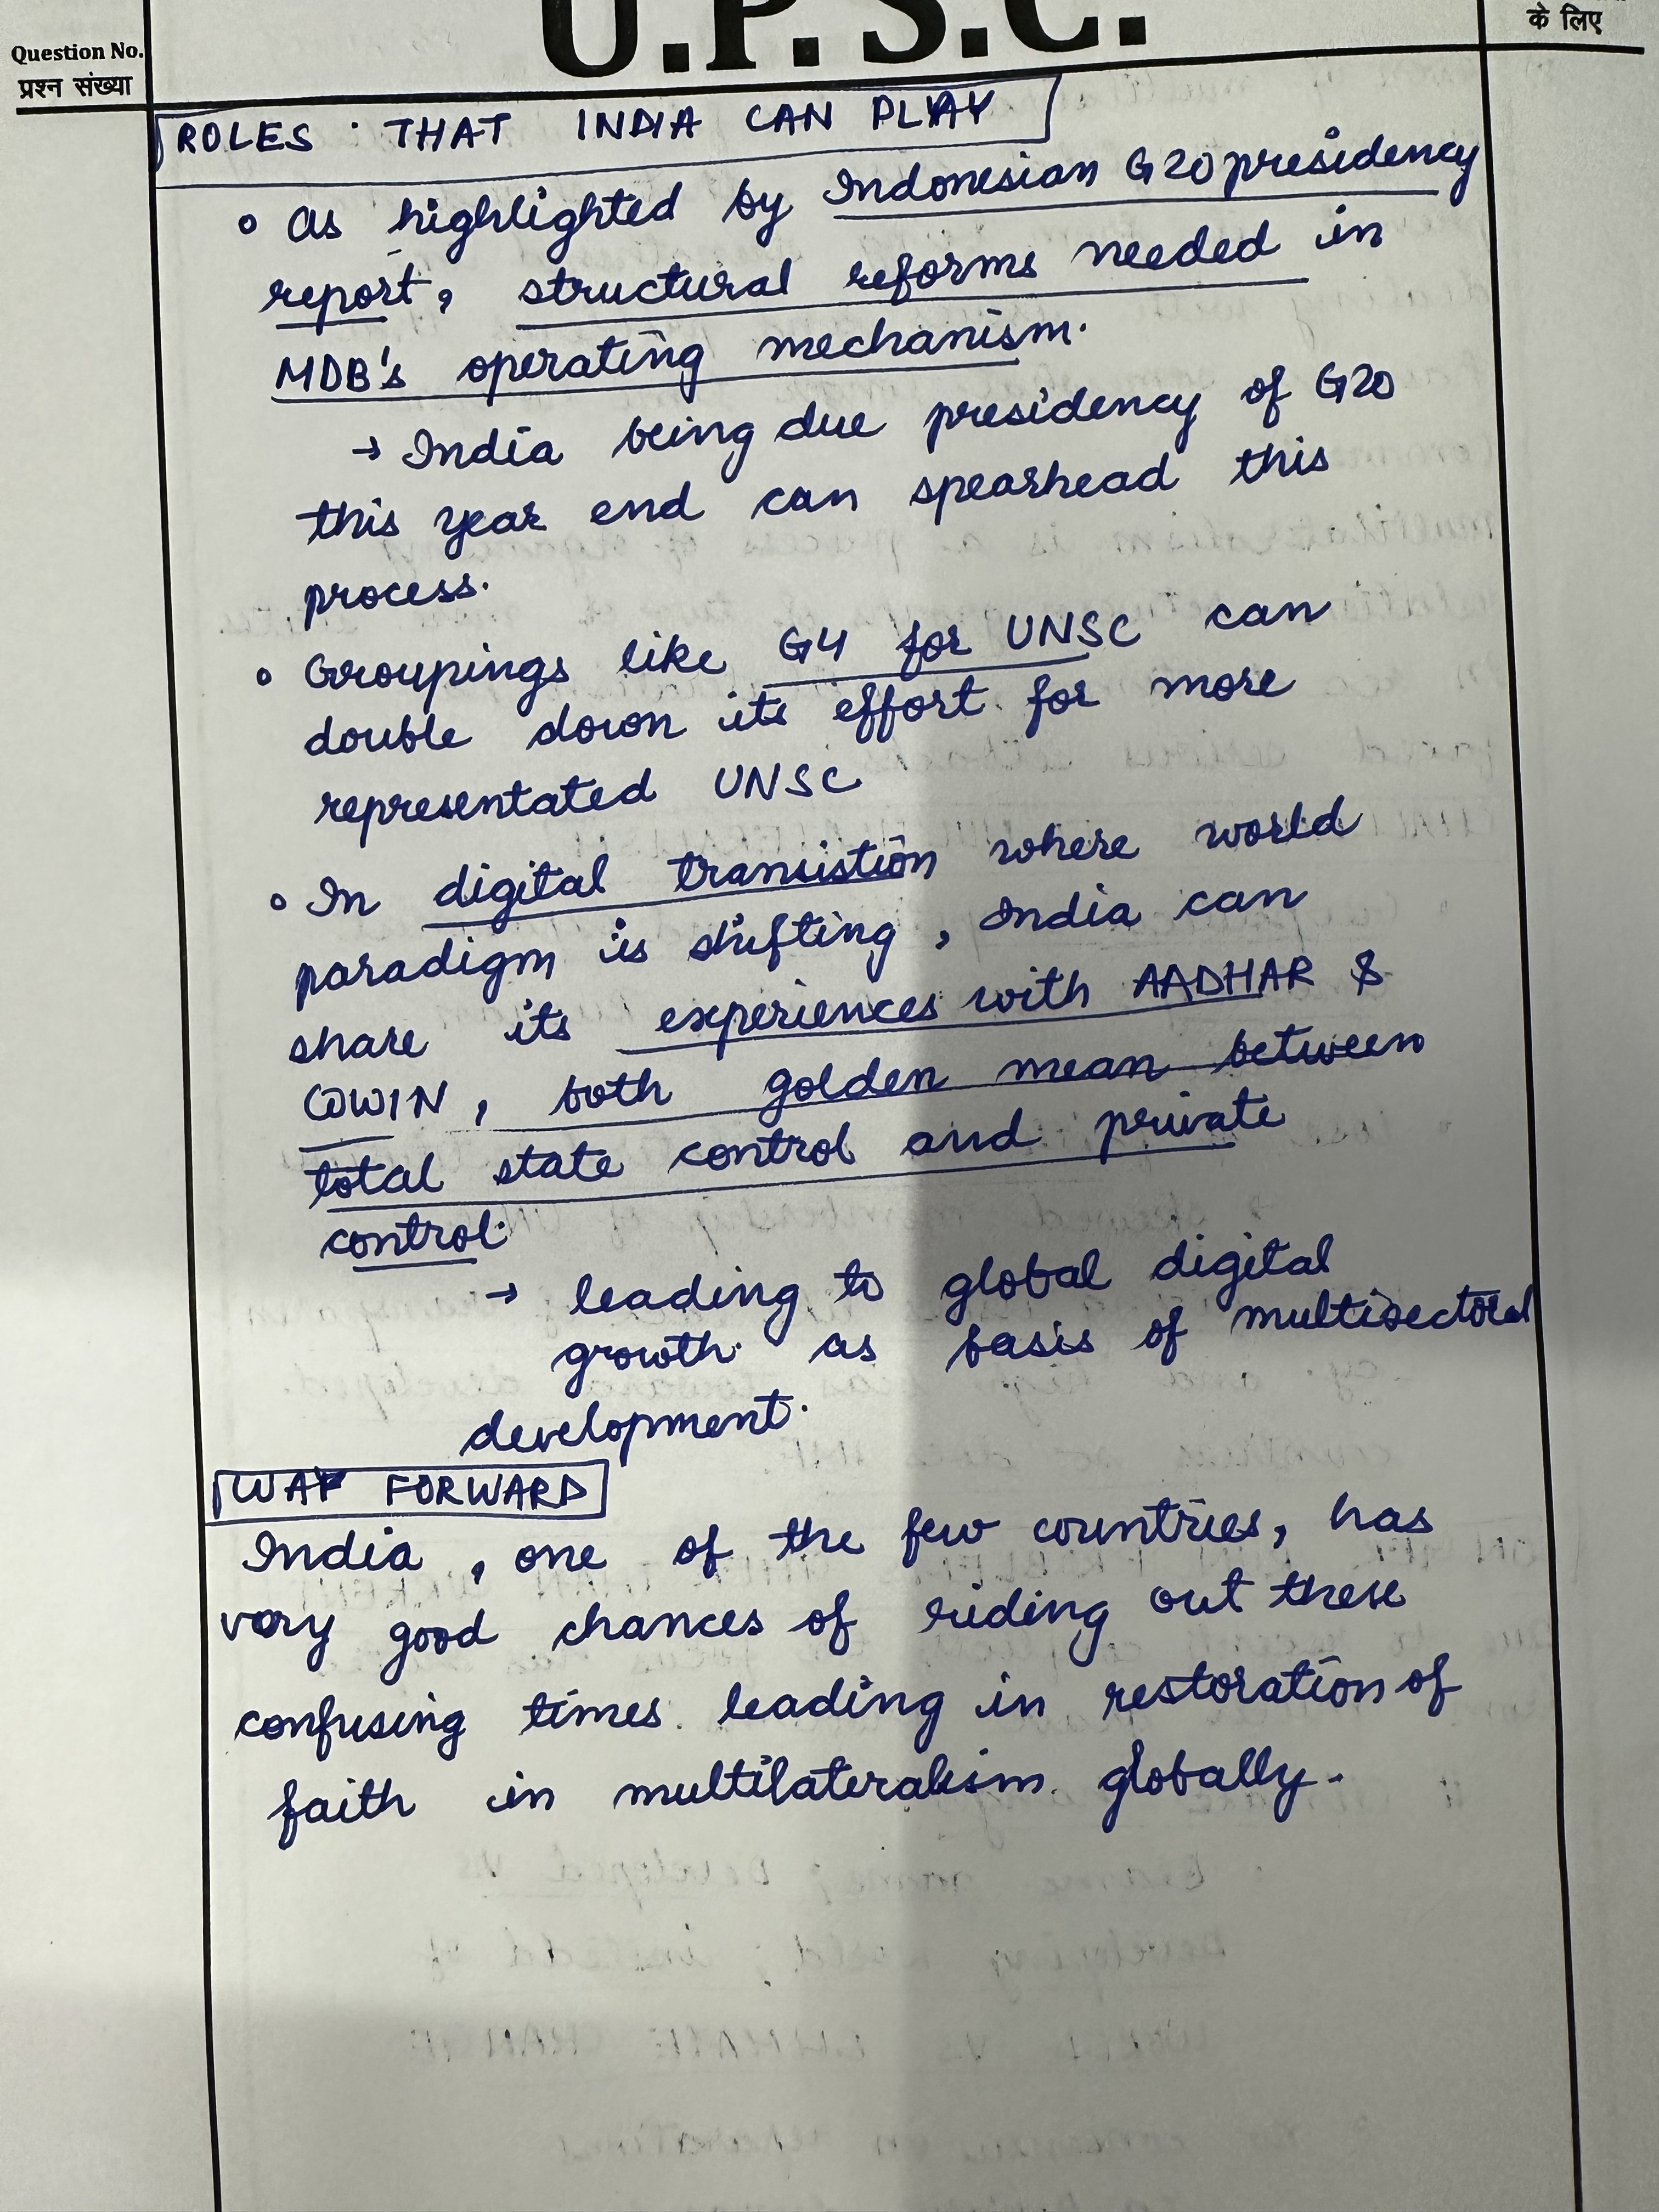 U.P.S.C.
Question No.
प्रश्न संख्या
के लिए
ROLES THAT INDIA CAN PLAY
• As highlighted by Indonesian G20 presidency
report, structural reforms needed in
MDB's operating mechanism.
→ India being due presidency of G20
this year end can spearhead this
process.
• Groupings like G4 for UNSC can
double down its effort for more
representated UNSC
• In digital transistion where world
paradigm is shifting, India can
share its experiences with AADHAR &
COWIN, both golden mean between
total state control and private
control.
→ leading to global digital
growth as basis of multisectoral
development.
WAY FORWARD
India, one of the few countries, has
very good chances of riding out these
confusing times leading in restoration of
faith in multilateralism globally.